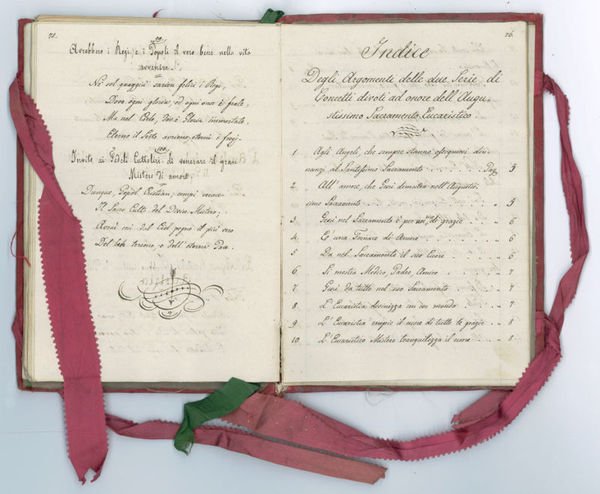 Avrebbero i Regi, e i Popoli il vero bene nella vita
avvenire.
Nè sol quaggiù saria felici i Regi,
Dove ogni gloria, ed ogni onor è frale,
Ma nel Cielo, dov'è Gloria immortale,
100.
Invito ai Popoli Cattolici di venerare il gran
Mistero di amore.
Dunque, Popol Cristian,
Il Sacro Culto del Divin Mistero,
Avrai così del Ciel pegno il più vero
Del ben terreno, e dell'eterna Pace.
26.
Indice
Degli Argomenti delle due Serie di
Concetti divoti ad onore dell'Augu
stissimo Sacramento Eucaristico
1. Agli Angeli, che sempre stanno ossequiosi din
nanzi al Santissimo Sacramento Pag. 5
2. All'amore, che Gesù dimostra nell'Augustis
simo Sacramento 5
3. Gesù nel Sacramento è di grazie 6
4. È una Fornace di Amore 6
5. Dà nel Sacramento il suo Cuore 6
6. Si mostra Medico, Padre, Amico 7
7. Gesù dà tutto nel suo Sacramento 7
8. L'Eucaristia mondo 7
9. L'Eucaristia empie il cuore di tutte le grazie 8
10. L'Eucaristico Mistero tranquillizza il cuore 8